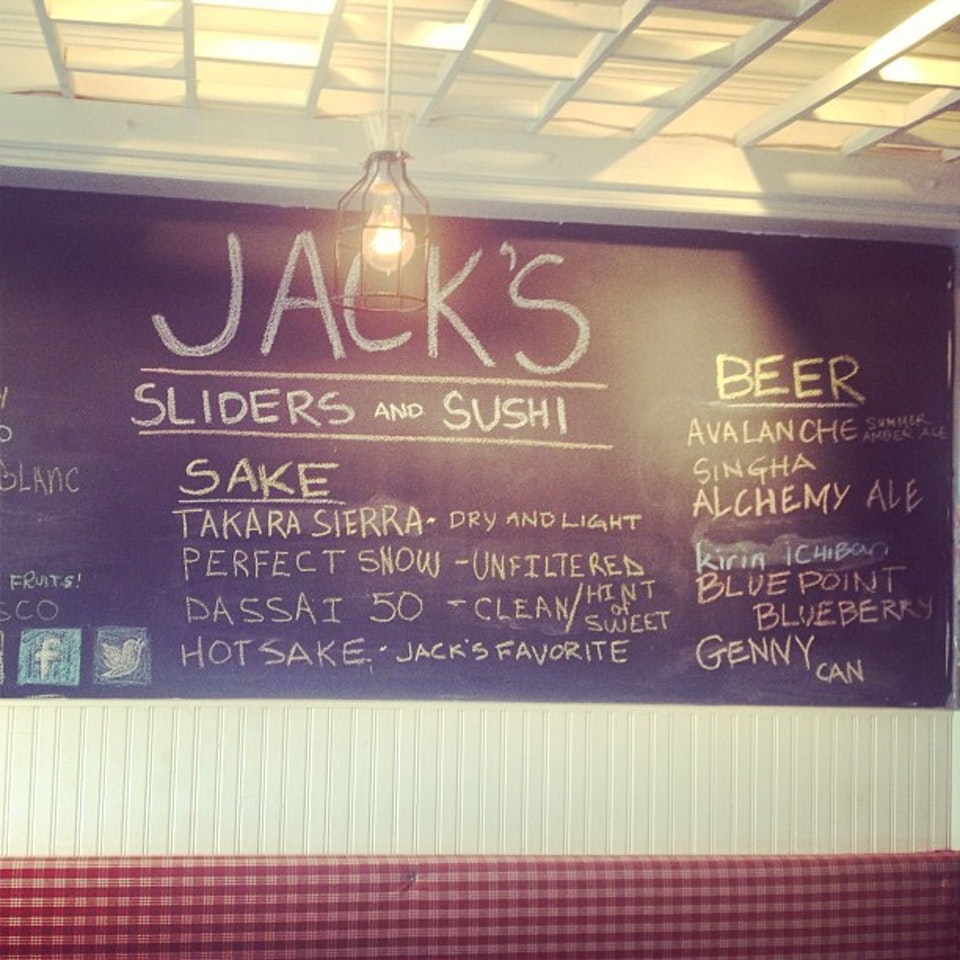 JACK'S
SLIDERS AND SUSHI
BLANC
FRUITS!
SAKE
TAKARA SIERRA - DRY AND LIGHT
PERFECT SNOW - UNFILTERED
DASSAI 50 - CLEAN/HINT OF SWEET
HOT SAKE - JACK'S FAVORITE
BEER
AVALANCHE SUMMER AMBER ALE
SINGHA
ALCHEMY ALE
Kirin ICHIBAN
BLUE POINT
BLUEBERRY
GENNY CAN